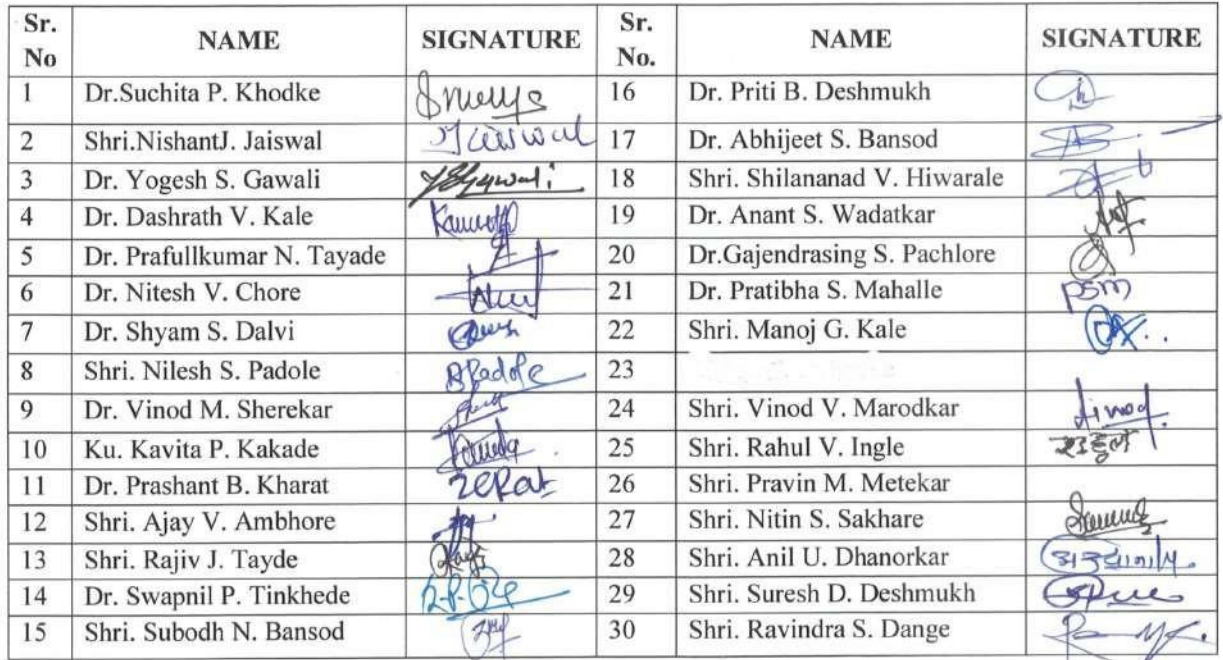 Sr. No NAME SIGNATURE Sr. No. NAME SIGNATURE
1 Dr.Suchita P. Khodke 16 Dr. Priti B. Deshmukh
2 Shri.NishantJ. Jaiswal Jaiswal 17 Dr. Abhijeet S. Bansod
3 Dr. Yogesh S. Gawali 18 Shri. Shilananad V. Hiwarale
4 Dr. Dashrath V. Kale 19 Dr. Anant S. Wadatkar
5 Dr. Prafullkumar N. Tayade 20 Dr.Gajendrasing S. Pachlore
6 Dr. Nitesh V. Chore 21 Dr. Pratibha S. Mahalle PSM
7 Dr. Shyam S. Dalvi 22 Shri. Manoj G. Kale
8 Shri. Nilesh S. Padole Padole 23
9 Dr. Vinod M. Sherekar 24 Shri. Vinod V. Marodkar Vinod
10 Ku. Kavita P. Kakade 25 Shri. Rahul V. Ingle राहुल
11 Dr. Prashant B. Kharat 26 Shri. Pravin M. Metekar
12 Shri. Ajay V. Ambhore 27 Shri. Nitin S. Sakhare
13 Shri. Rajiv J. Tayde 28 Shri. Anil U. Dhanorkar
14 Dr. Swapnil P. Tinkhede 29 Shri. Suresh D. Deshmukh
15 Shri. Subodh N. Bansod 30 Shri. Ravindra S. Dange